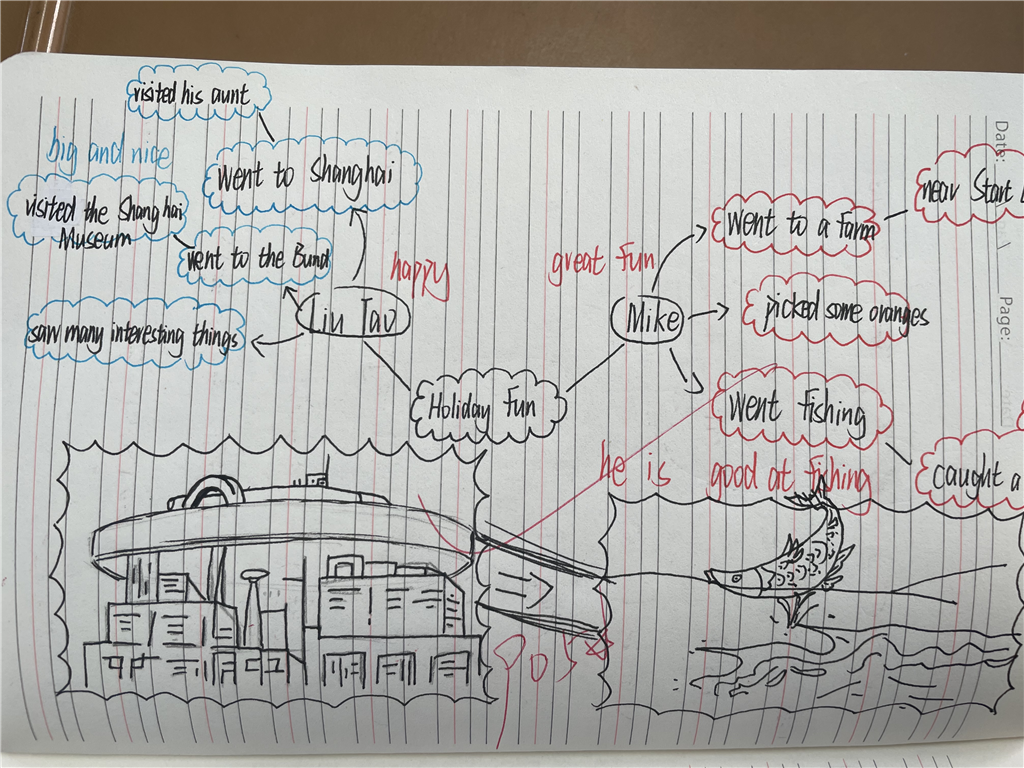 visited his aunt
big and nice
went to Shanghai
visited the Shanghai
Museum
went to the Bund
happy
saw many interesting things
Liu Tao
Holiday Fun
great fun
Mike
went to a farm
near Star
picked some oranges
went fishing
caught a
he is good at fishing
Date:
Page: